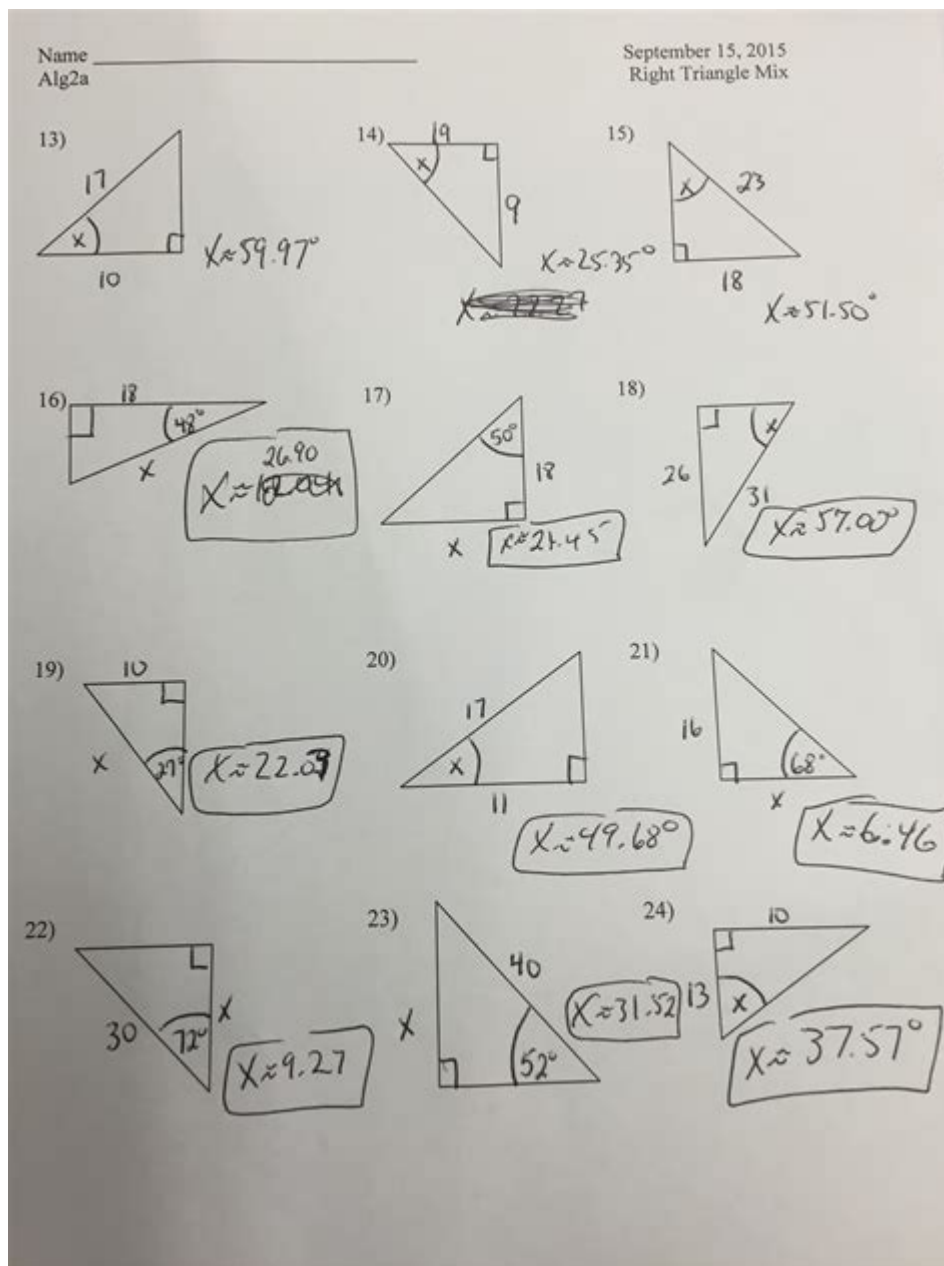 Name
September 15, 2015
Alg2a
Right Triangle Mix
13)
17
x
10
X≈59.97°
14)
19
x
9
X≈25.35°
15)
x
23
18
X≈51.50°
16)
18
48°
x
26.90
X≈
17)
50°
18
x
x≈21.45
18)
x
26
31
X≈57.00°
19)
10
x
27°
X≈22.03
20)
17
x
11
X≈49.68°
21)
16
68°
x
X≈6.46
22)
30
72°
x
X≈9.27
23)
40
x
52°
X≈31.52
24)
10
13
x
X≈37.57°